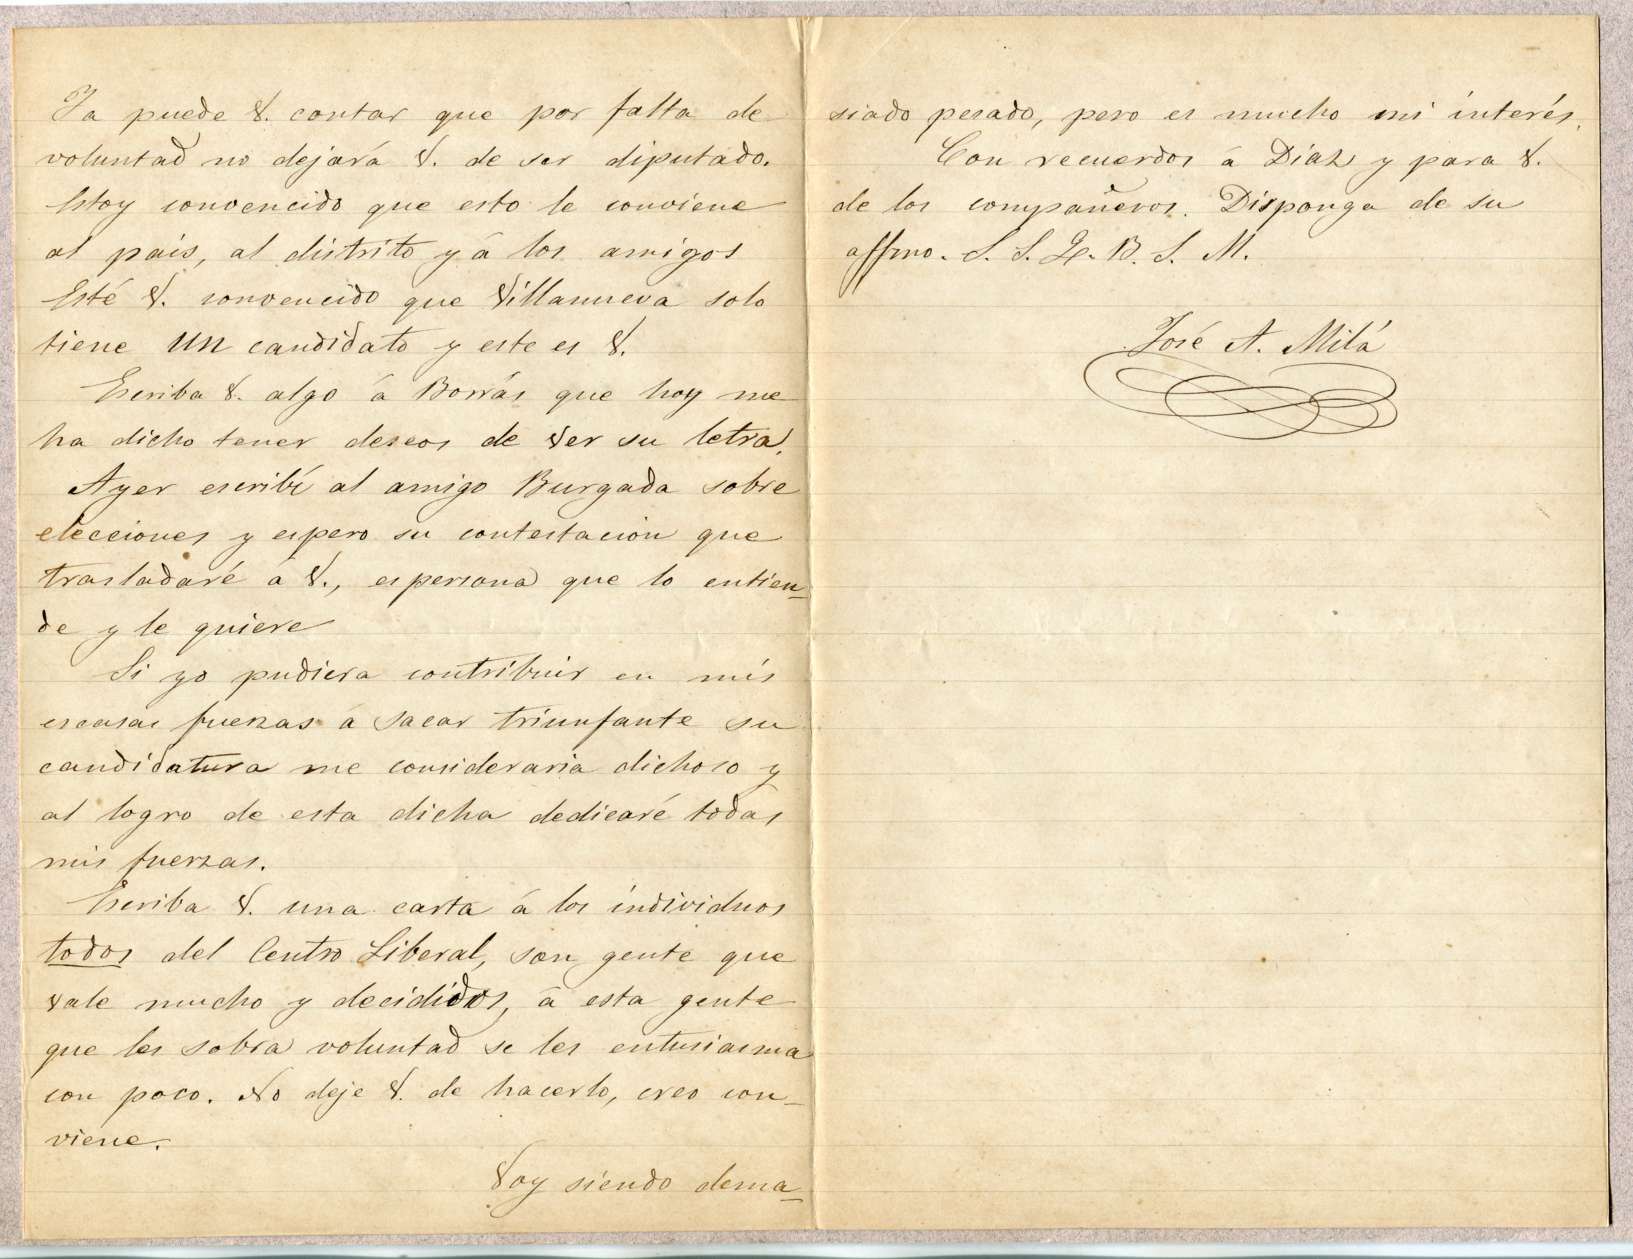 Ya puede V. contar que por falta de
voluntad no dejará V. de ser diputado.
Estoy convencido que esto le conviene
al país, al distrito y á los amigos
Esté V. convencido que Villanueva solo
tiene un candidato y este es V.
Escriba V. algo á Borrás que hoy me
ha dicho tener deseos de ver su letra.
Ayer escribí al amigo Burgada sobre
elecciones y espero su contestación que
trasladaré á V., es persona que lo entien-
de y le quiere
Si yo pudiera contribuir en mis
escasas fuerzas á sacar triunfante su
candidatura me consideraria dichoso y
al logro de esta dicha dedicaré todas
mis fuerzas.
Escriba V. una carta á los individuos
todos del Centro Liberal, son gente que
vale mucho y decididos, á esta gente
que les sobra voluntad se les entusiasma
con poco. No deje V. de hacerlo, creo con-
viene.
Voy siendo dema-
siado pesado, pero es mucho mi interés.
Con recuerdos á Díaz y para V.
de los compañeros. Disponga de su
affmo. S. S. Q. B. S. M.
José A. Milá